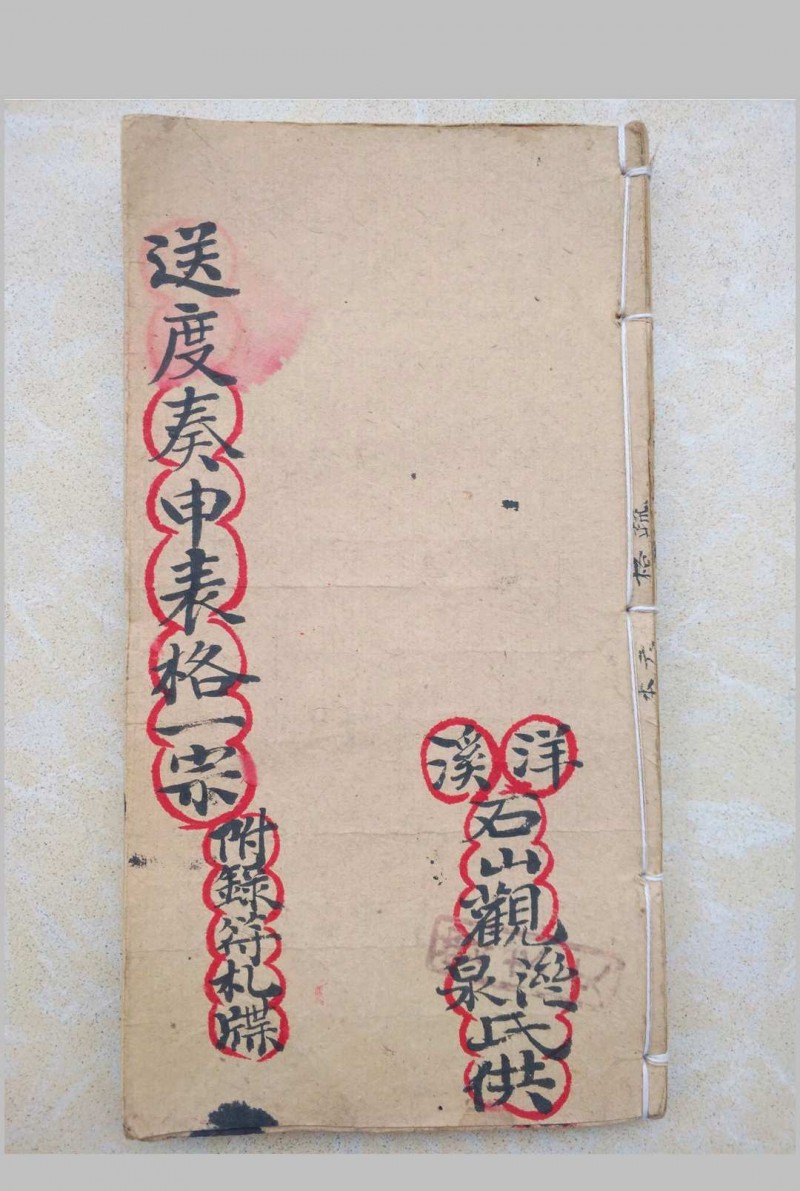 洋溪
石山觀
滋泉
氏供
送度奏申表格一宗
附錄符札牒